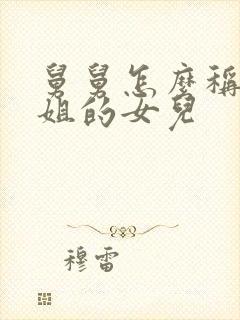 舅舅怎麼稱
姐的女兒
穆雷